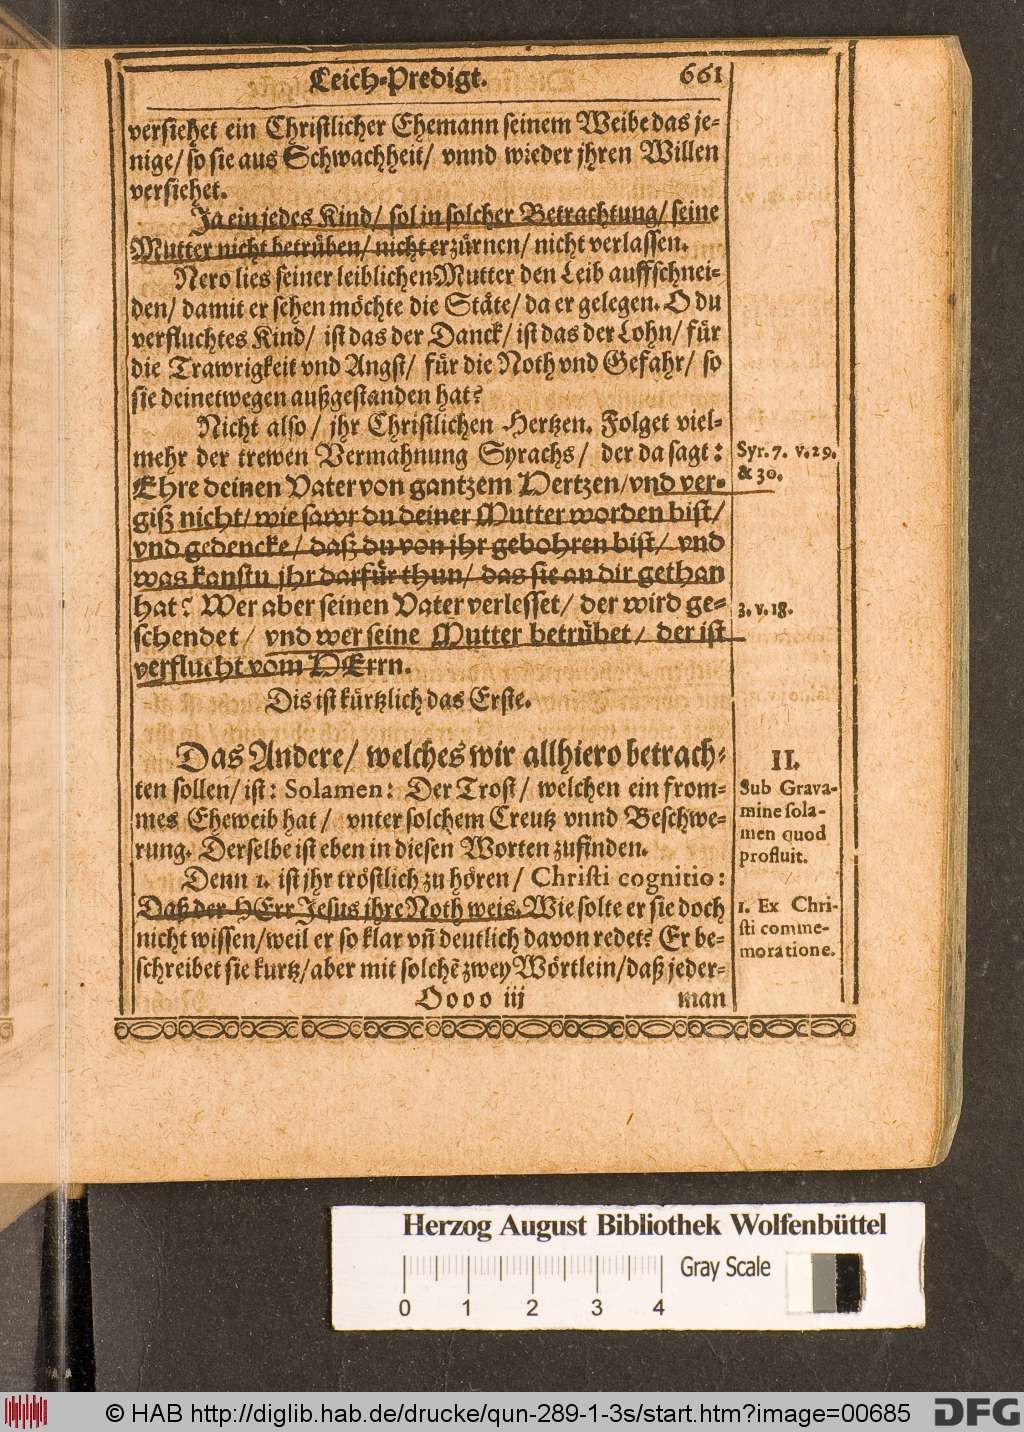 Leich-Predigt. 661
versiehet ein Christlicher Ehemann seinem Weibe das je-
nige/ so sie aus Schwachheit/ vnnd wieder jhren Willen
versiehet.
Ja ein jedes Kind/ sol in solcher Betrachtung/ seine
Mutter nicht betrüben/ nicht erzürnen/ nicht verlassen.
Nero lies seiner leiblichen Mutter den Leib auffschnei-
den/ damit er sehen möchte die Stäte/ da er gelegen. O du
verfluchtes Kind/ ist das der Danck/ ist das der Lohn/ für
die Trawrigkeit vnd Angst/ für die Noth vnd Gefahr/ so
sie deinetwegen außgestanden hat?
Nicht also/ jhr Christlichen Hertzen. Folget viel-
mehr der trewen Vermahnung Syrachs/ der da sagt:
Ehre deinen Vater von gantzem Hertzen/ vnd ver-
giß nicht/ wie sawr du deiner Mutter worden bist/
vnd gedencke/ daß du von jhr gebohren bist/ vnd
was kanstu jhr darfür thun/ das sie an dir gethan
hat? Wer aber seinen Vater verlesset/ der wird ge-
schendet/ vnd wer seine Mutter betrübet/ der ist
verflucht vom HErrn.
Dis ist kürtzlich das Erste.
Das Andere/ welches wir allhiero betrach-
ten sollen/ ist: Solamen: Der Trost/ welchen ein from-
mes Eheweib hat/ vnter solchem Creutz vnnd Beschwe-
rung. Derselbe ist eben in diesen Worten zufinden.
Denn 1. ist jhr tröstlich zu hören/ Christi cognitio:
Daß der HErr Jesus jhre Noth weis. Wie solte er sie doch
nicht wissen/ weil er so klar vn̄ deutlich davon redet? Er be-
schreibet sie kurtz/ aber mit solchē zwey Wörtlein/ daß jeder-
Oooo iij man
Syr. 7. v. 29.
& 30.
3. v. 18.
II.
Sub Grava-
mine sola-
men quod
profluit.
1. Ex Chri-
sti comme-
moratione.
Herzog August Bibliothek Wolfenbüttel
Gray Scale
0 1 2 3 4
© HAB http://diglib.hab.de/drucke/qun-289-1-3s/start.htm?image=00685
DFG